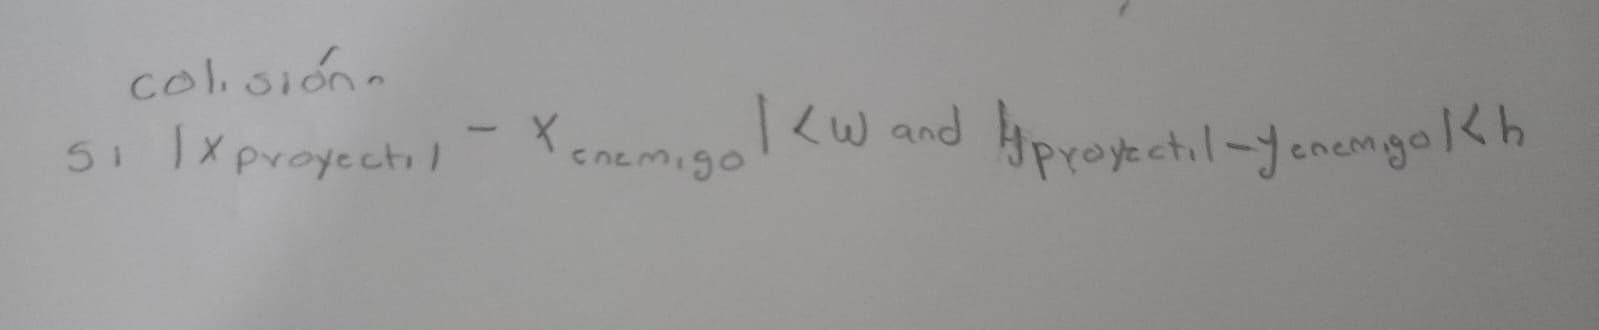 colisión.
si |x proyectil - x enemigo| < w and |y proyectil - y enemigo| < h